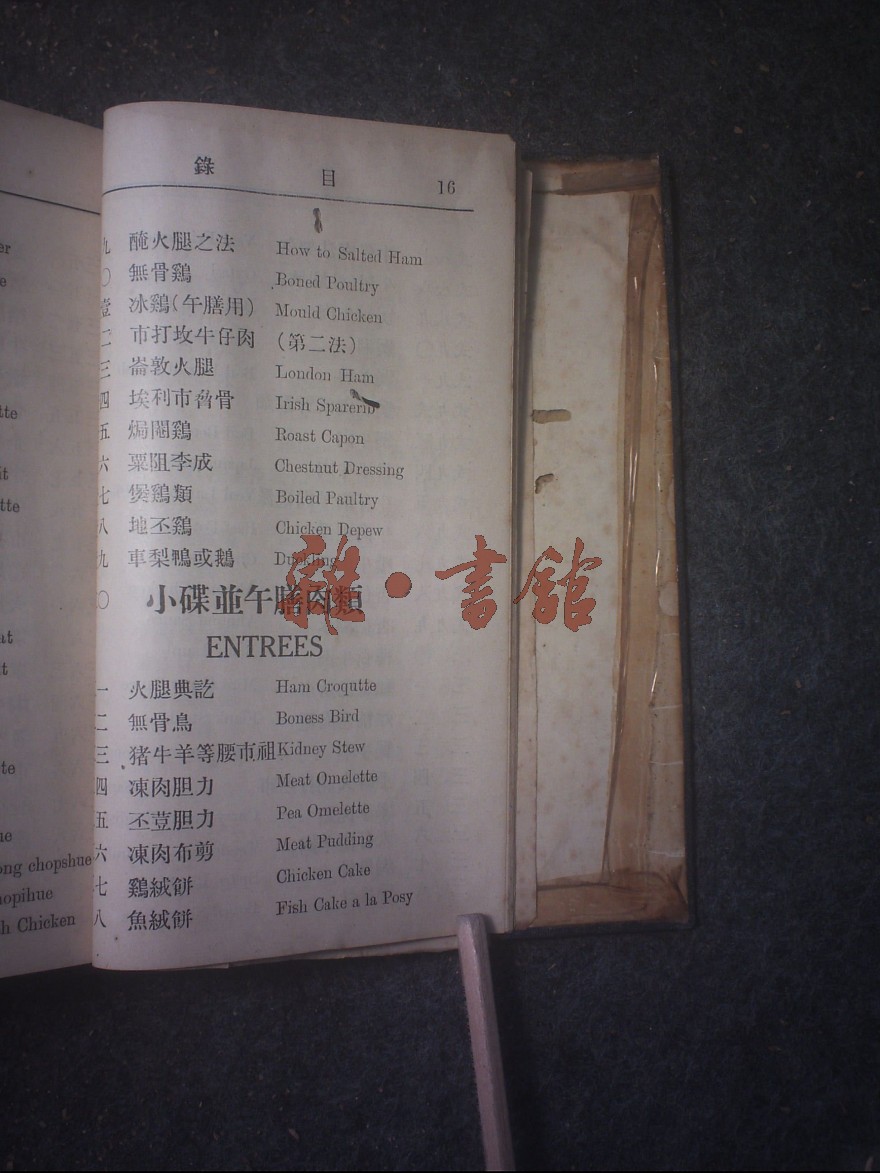 錄 目 16
九 醃火腿之法 How to Salted Ham
〇 無骨鷄 Boned Poultry
壹 冰鷄(午膳用) Mould Chicken
二 市打坟牛仔肉 (第二法)
三 崙敦火腿 London Ham
四 埃利市脅骨 Irish Sparerib
五 焗閹鷄 Roast Capon
六 粟阻李成 Chestnut Dressing
七 煲鷄類 Boiled Paultry
八 地丕鷄 Chicken Depew
九 車梨鴨或鵝 Duckling
〇 小碟並午膳肉類
ENTREES
一 火腿典訖 Ham Croqutte
二 無骨鳥 Boness Bird
三 猪牛羊等腰市祖 Kidney Stew
四 凍肉胆力 Meat Omelette
五 丕荳胆力 Pea Omelette
六 凍肉布剪 Meat Pudding
七 鷄絨餅 Chicken Cake
八 魚絨餅 Fish Cake a la Posy
雜·書館
er
e
tte
it
tte
at
it
te
ue
ong chopshue
hopihue
h Chicken